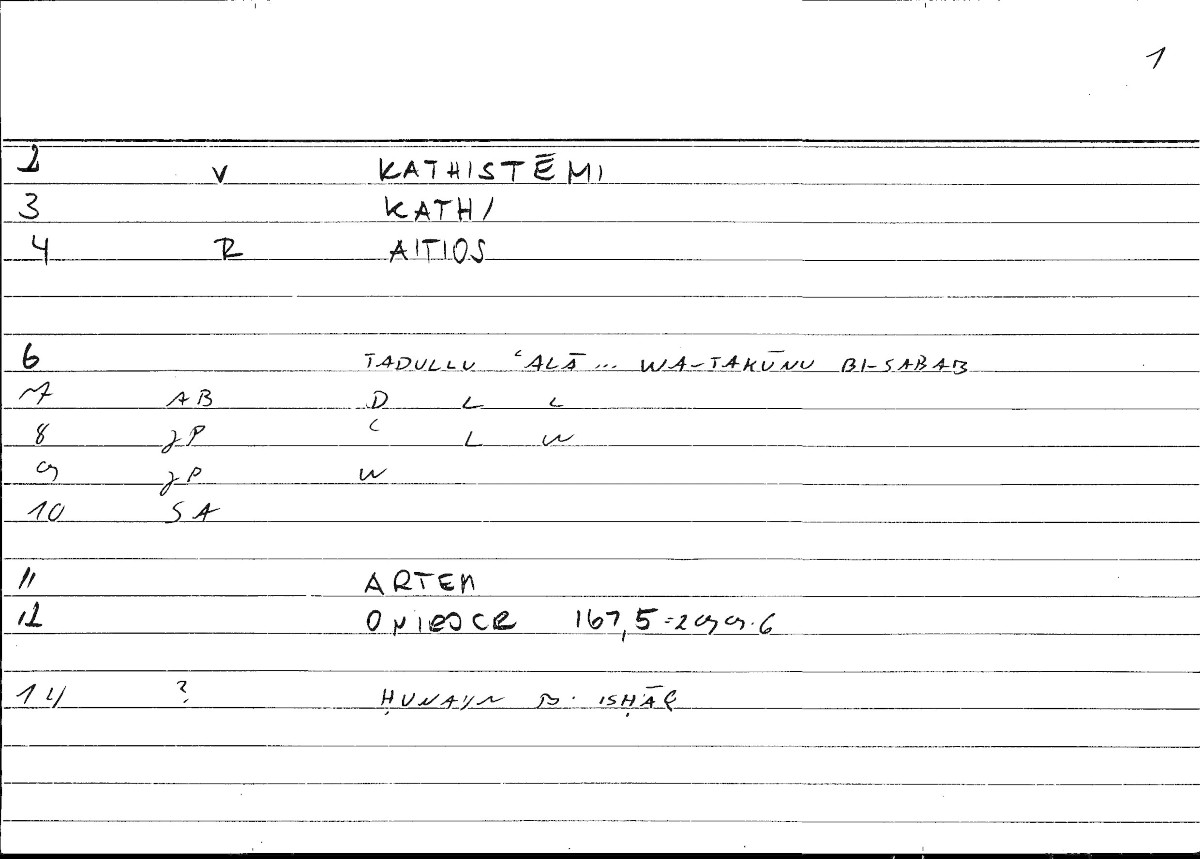 1
2 V KATHISTĒMI
3 KATHI
4 R AITIOS
6 TADULLU ʿALĀ ... WA-TAKŪNU BI-SABAB
7 AB D L L
8 JP ʿ L W
9 JP W
10 SA
11 ARTEM
12 ONIROCR 167,5=299.6
14 ? ḤUNAYN B. ISḤĀQ